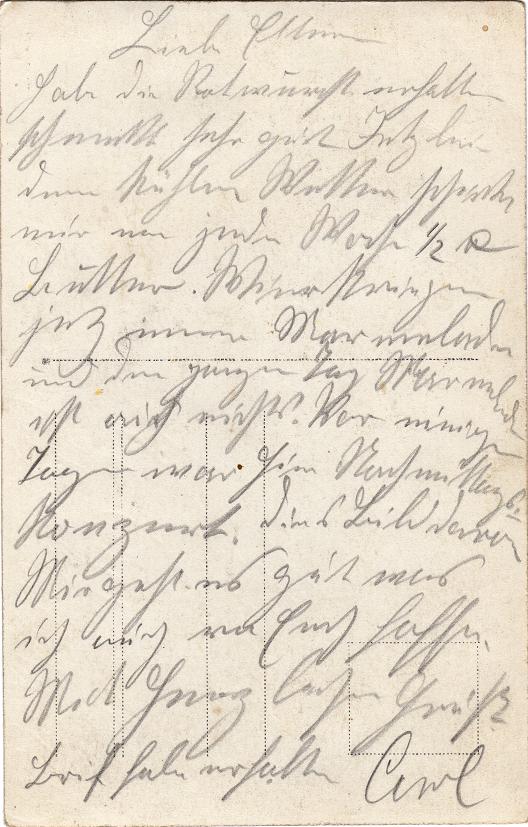 Liebe Eltern
habe die Rotwurst erhalten
schmekt sehr gut Jetz bei
dem kühlen Wetter schickt
mir nur jede Woche 1/2 ℔
Butter. Wier kriegen
jetz immer Marmelade
und den ganzen Tag Marmelade
ist auch nichts. Vor einigen
Tagen war hier Nachmittags-
Konzert. dies Bild davon
Mir geht es gut was
ich auch von Euch hoffe.
Mit Herzlichen Gruß
Brief habe erhalten Carl